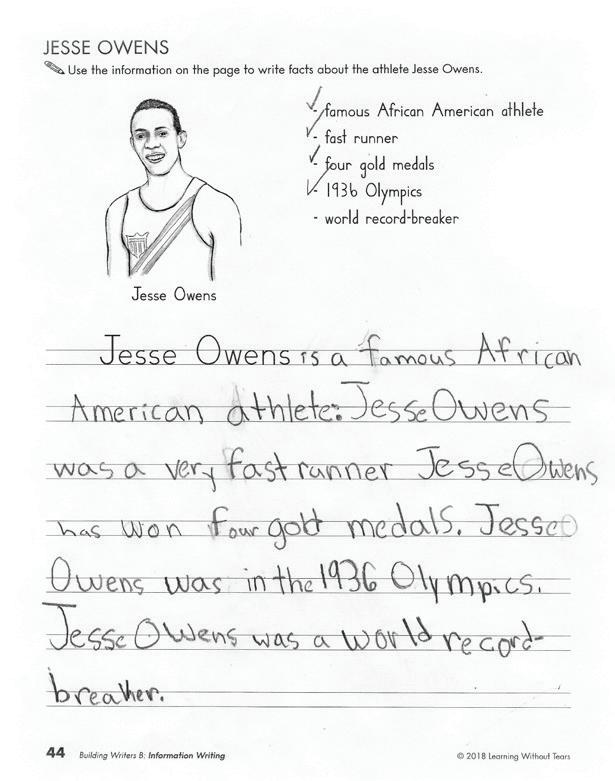 JESSE OWENS
Use the information on the page to write facts about the athlete Jesse Owens.
- famous African American athlete
- fast runner
- four gold medals
- 1936 Olympics
- world record-breaker
Jesse Owens
Jesse Owens is a famous African
American athlete. Jesse Owens
was a very fast runner Jesse Owens
has won four gold medals. Jesse
Owens was in the 1936 Olympics.
Jesse Owens was a world record-
breaker.
44 Building Writers B: Information Writing © 2018 Learning Without Tears